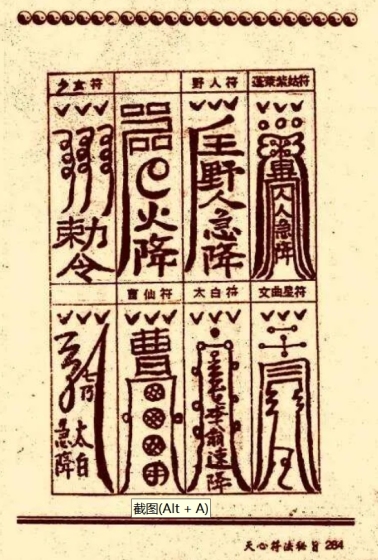 野人符
蓬莱紫姑符
勅令
火降
野人急降
人急降
曹仙符
太白符
文曲星符
太白急降
曹
李翁速降
截图(Alt + A)
天心符法秘旨 264